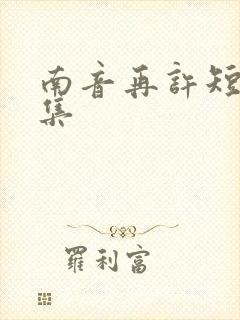 南音再許短
集
羅利富